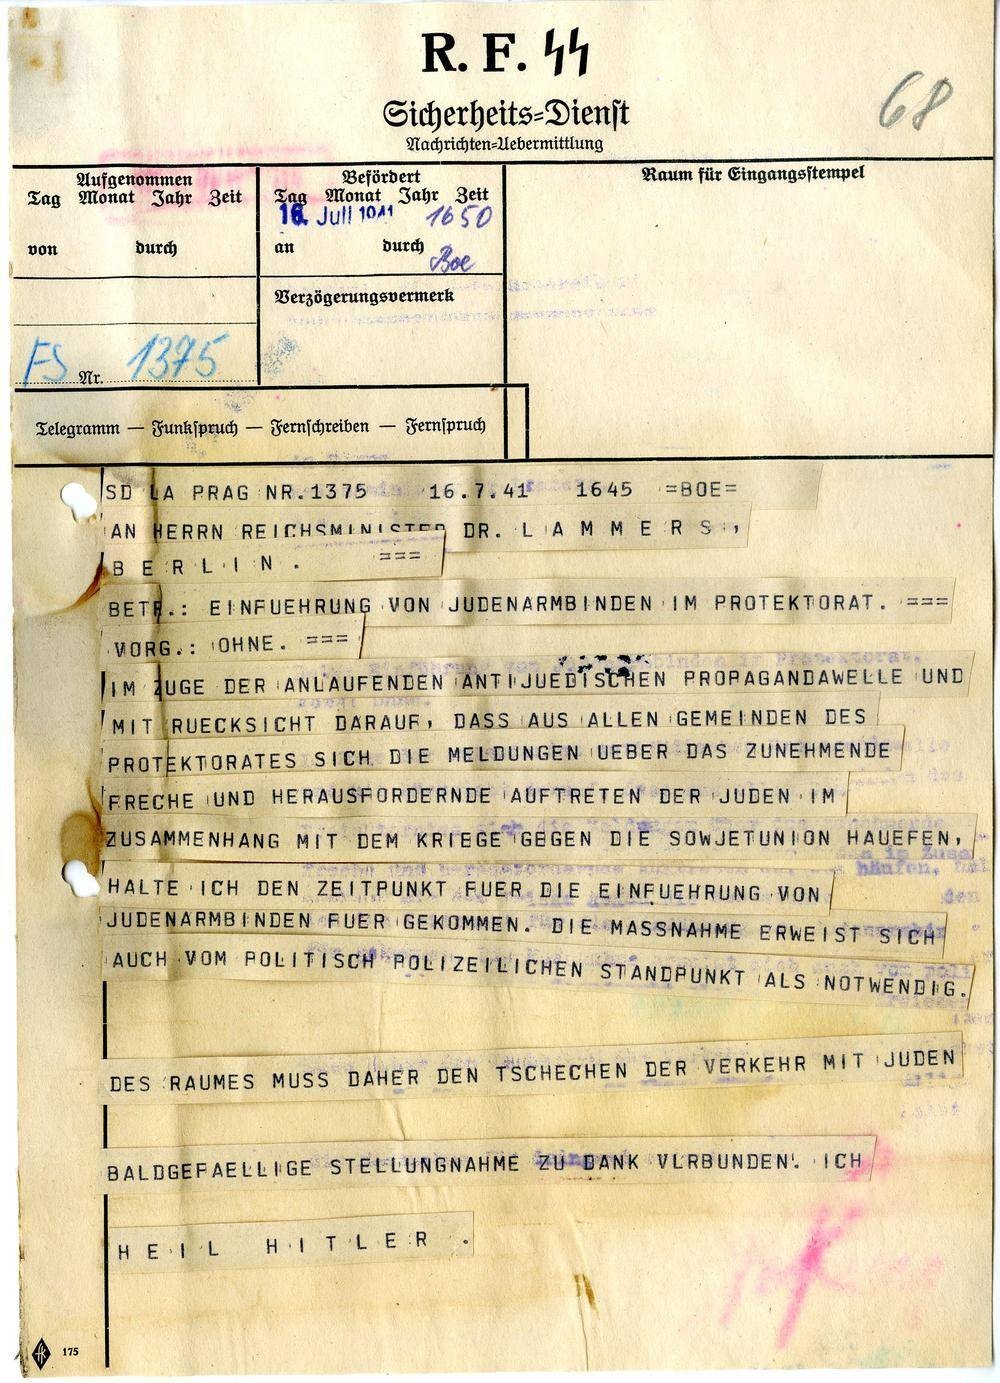 R. F. SS
68
Sicherheits=Dienst
Nachrichten=Uebermittlung
Aufgenommen
Tag Monat Jahr Zeit
von durch
FS Nr. 1375
Befördert
Tag Monat Jahr Zeit
16. Juli 1941 1650
an durch
Boe
Verzögerungsvermerk
Raum für Eingangsstempel
Telegramm — Funkspruch — Fernschreiben — Fernspruch
SD LA PRAG NR.1375 16.7.41 1645 =BOE=
AN HERRN REICHSMINISTER DR. L A M M E R S ,
B E R L I N . ===
BETR.: EINFUEHRUNG VON JUDENARMBINDEN IM PROTEKTORAT. ===
VORG.: OHNE. ===
IM ZUGE DER ANLAUFENDEN ANTIJUEDISCHEN PROPAGANDAWELLE UND
MIT RUECKSICHT DARAUF, DASS AUS ALLEN GEMEINDEN DES
PROTEKTORATES SICH DIE MELDUNGEN UEBER DAS ZUNEHMENDE
FRECHE UND HERAUSFORDERNDE AUFTRETEN DER JUDEN IM
ZUSAMMENHANG MIT DEM KRIEGE GEGEN DIE SOWJETUNION HAUEFEN,
HALTE ICH DEN ZEITPUNKT FUER DIE EINFUEHRUNG VON
JUDENARMBINDEN FUER GEKOMMEN. DIE MASSNAHME ERWEIST SICH
AUCH VOM POLITISCH POLIZEILICHEN STANDPUNKT ALS NOTWENDIG.
DES RAUMES MUSS DAHER DEN TSCHECHEN DER VERKEHR MIT JUDEN
BALDGEFAELLIGE STELLUNGNAHME ZU DANK VLRBUNDEN. ICH
H E I L H I T L E R .
175